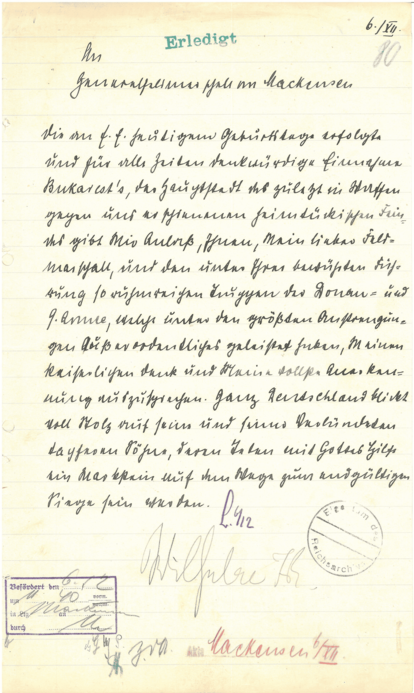 6./XII.
Erledigt
80
An
Generalfeldmarschall von Mackensen
Die an E. E. heutigem Geburtstage erfolgte
und für alle Zeiten denkwürdige Einnahme
Bukarest's, der Hauptstadt des zuletzt in Waffen
gegen uns erschienenen heimtückischen Fein-
des gibt Mir Anlaß, Ihnen, Mein lieber Feld-
marschall, und den unter Ihrer bewährten Füh-
rung so ruhmreichen Truppen der Donau- und
9. Armee, welche unter den größten Anstrengun-
gen Außerordentliches geleistet haben, Meinen
Kaiserlichen Dank und Meine vollste Anerken-
nung auszusprechen. Ganz Deutschland blickt
voll Stolz auf seine und seiner Verbündeten
tapferen Söhne, deren Taten mit Gottes Hilfe
ein Markstein auf dem Wege zum endgültigen
Siege sein werden.
L. 6/12
Wilhelm I.R.
Eigentum des
Reichsarchivs
Befördert den 6.12
um 11 40 vorm.
an
durch
z.d.A.
Akte Mackensen 6/XII